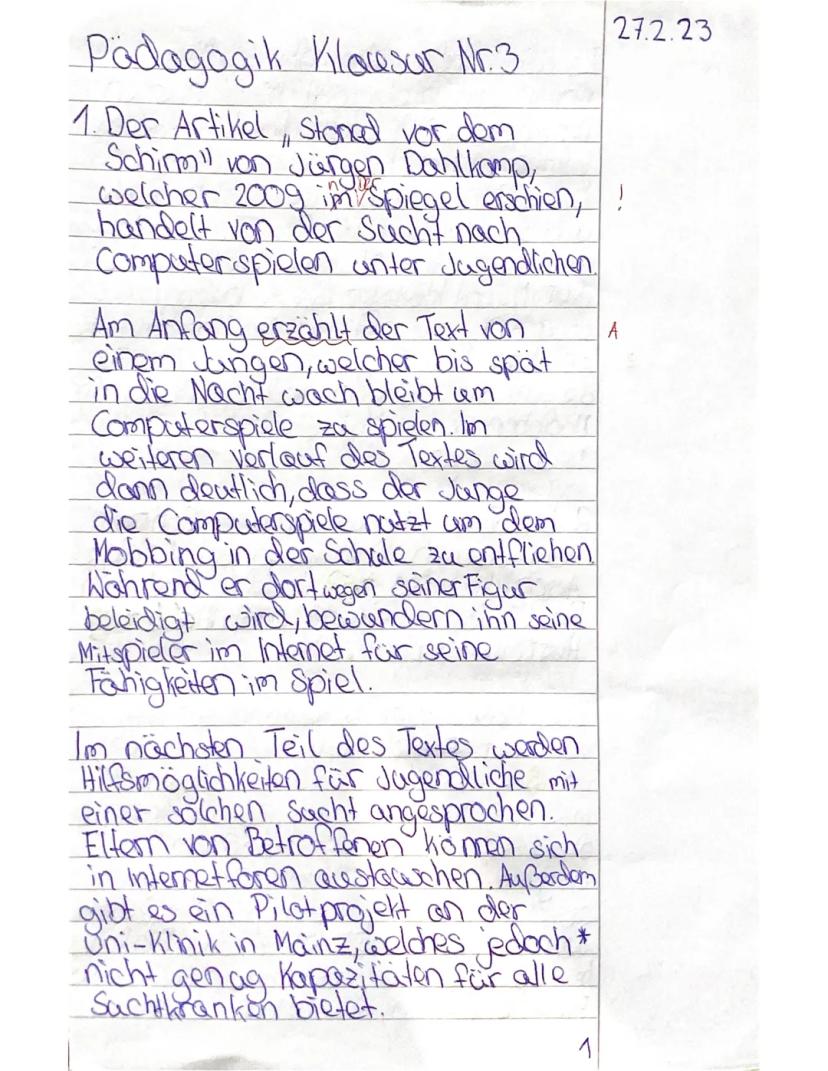 27.2.23
Pädagogik Klausur Nr.3
1. Der Artikel „Stoned vor dem
Schirm" von Jürgen Dahlkamp,
welcher 2009 im Spiegel erschien, !
handelt von der Sucht nach
Computerspielen unter Jugendlichen.
Am Anfang erzählt der Text von A
einem Jungen, welcher bis spät
in die Nacht wach bleibt um
Computerspiele zu spielen. Im
weiteren Verlauf des Textes wird
dann deutlich, dass der Junge
die Computerspiele nutzt um dem
Mobbing in der Schule zu entfliehen.
Während er dort wegen seiner Figur
beleidigt wird, bewundern ihn seine
Mitspieler im Internet für seine
Fähigkeiten im Spiel.
Im nächsten Teil des Textes werden
Hilfsmöglichkeiten für Jugendliche mit
einer solchen Sucht angesprochen.
Eltern von Betroffenen können sich
in Internetforen austauschen. Außerdem
gibt es ein Pilotprojekt an der
Uni-Klinik in Mainz, welches jedoch*
nicht genug Kapazitäten für alle
Suchtkranken bietet.
1